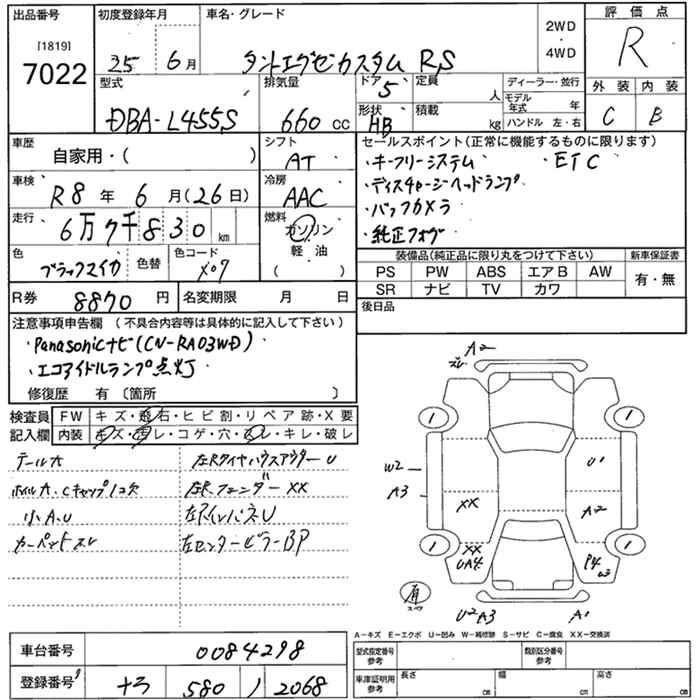 出品番号
[1819]
7022
初度登録年月
25年 6月
車名・グレード
タントエグゼカスタム RS
2WD
4WD
評価点
R
外装 内装
C B
型式
DBA-L455S
排気量
660 CC
ドア
5
定員
人
形状
HB
積載
kg
ディーラー・並行
モデル年式 年
ハンドル 左・右
車歴
自家用・( )
シフト
AT
車検
R8年 6月(26日)
冷房
AAC
走行
6万7千830 km
燃料
ガソリン
軽油
( )
色
ブラックマイカ
色替
色コード
X07
R券
8870円
名変期限 月 日
セールスポイント(正常に機能するものに限ります)
・キーフリーシステム ・ETC
・ディスチャージヘッドランプ
・バックカメラ
・純正フォグ
装備品(純正品に限り丸をつけて下さい)
PS PW ABS エアB AW
SR ナビ TV カワ
新車保証書
有・無
後日品
注意事項申告欄(不具合内容等は具体的に記入して下さい)
・Panasonicナビ(CN-RA03WD)
・エコアイドルランプ点灯
修復歴 有〔箇所 〕
検査員記入欄
FW キズ・飛石・ヒビ割・リペア跡・X要
内装 キズ・汚レ・コゲ・穴・スレ・キレ・破レ
テール大
ホイル大、Cキャップ1コ欠
小A、U
カーペットスレ
左Rタイヤハウスアウター U
左R.フェンダー XX
左Rインパネ U
左センターピラー BP
A2
ズレ
1
1
W2
A3
U1
XX
A2
1
1
XX
UA4
P4
W3
有
スペア
U2 A3
A1
A-キズ E-エクボ U-凹み W-補修跡 S-サビ C-腐食 XX-交換済
車台番号
0084298
登録番号
580
2068
型式指定番号
参考
類別区分番号
参考
車庫証明用
参考
長さ cm
幅 cm
高さ cm